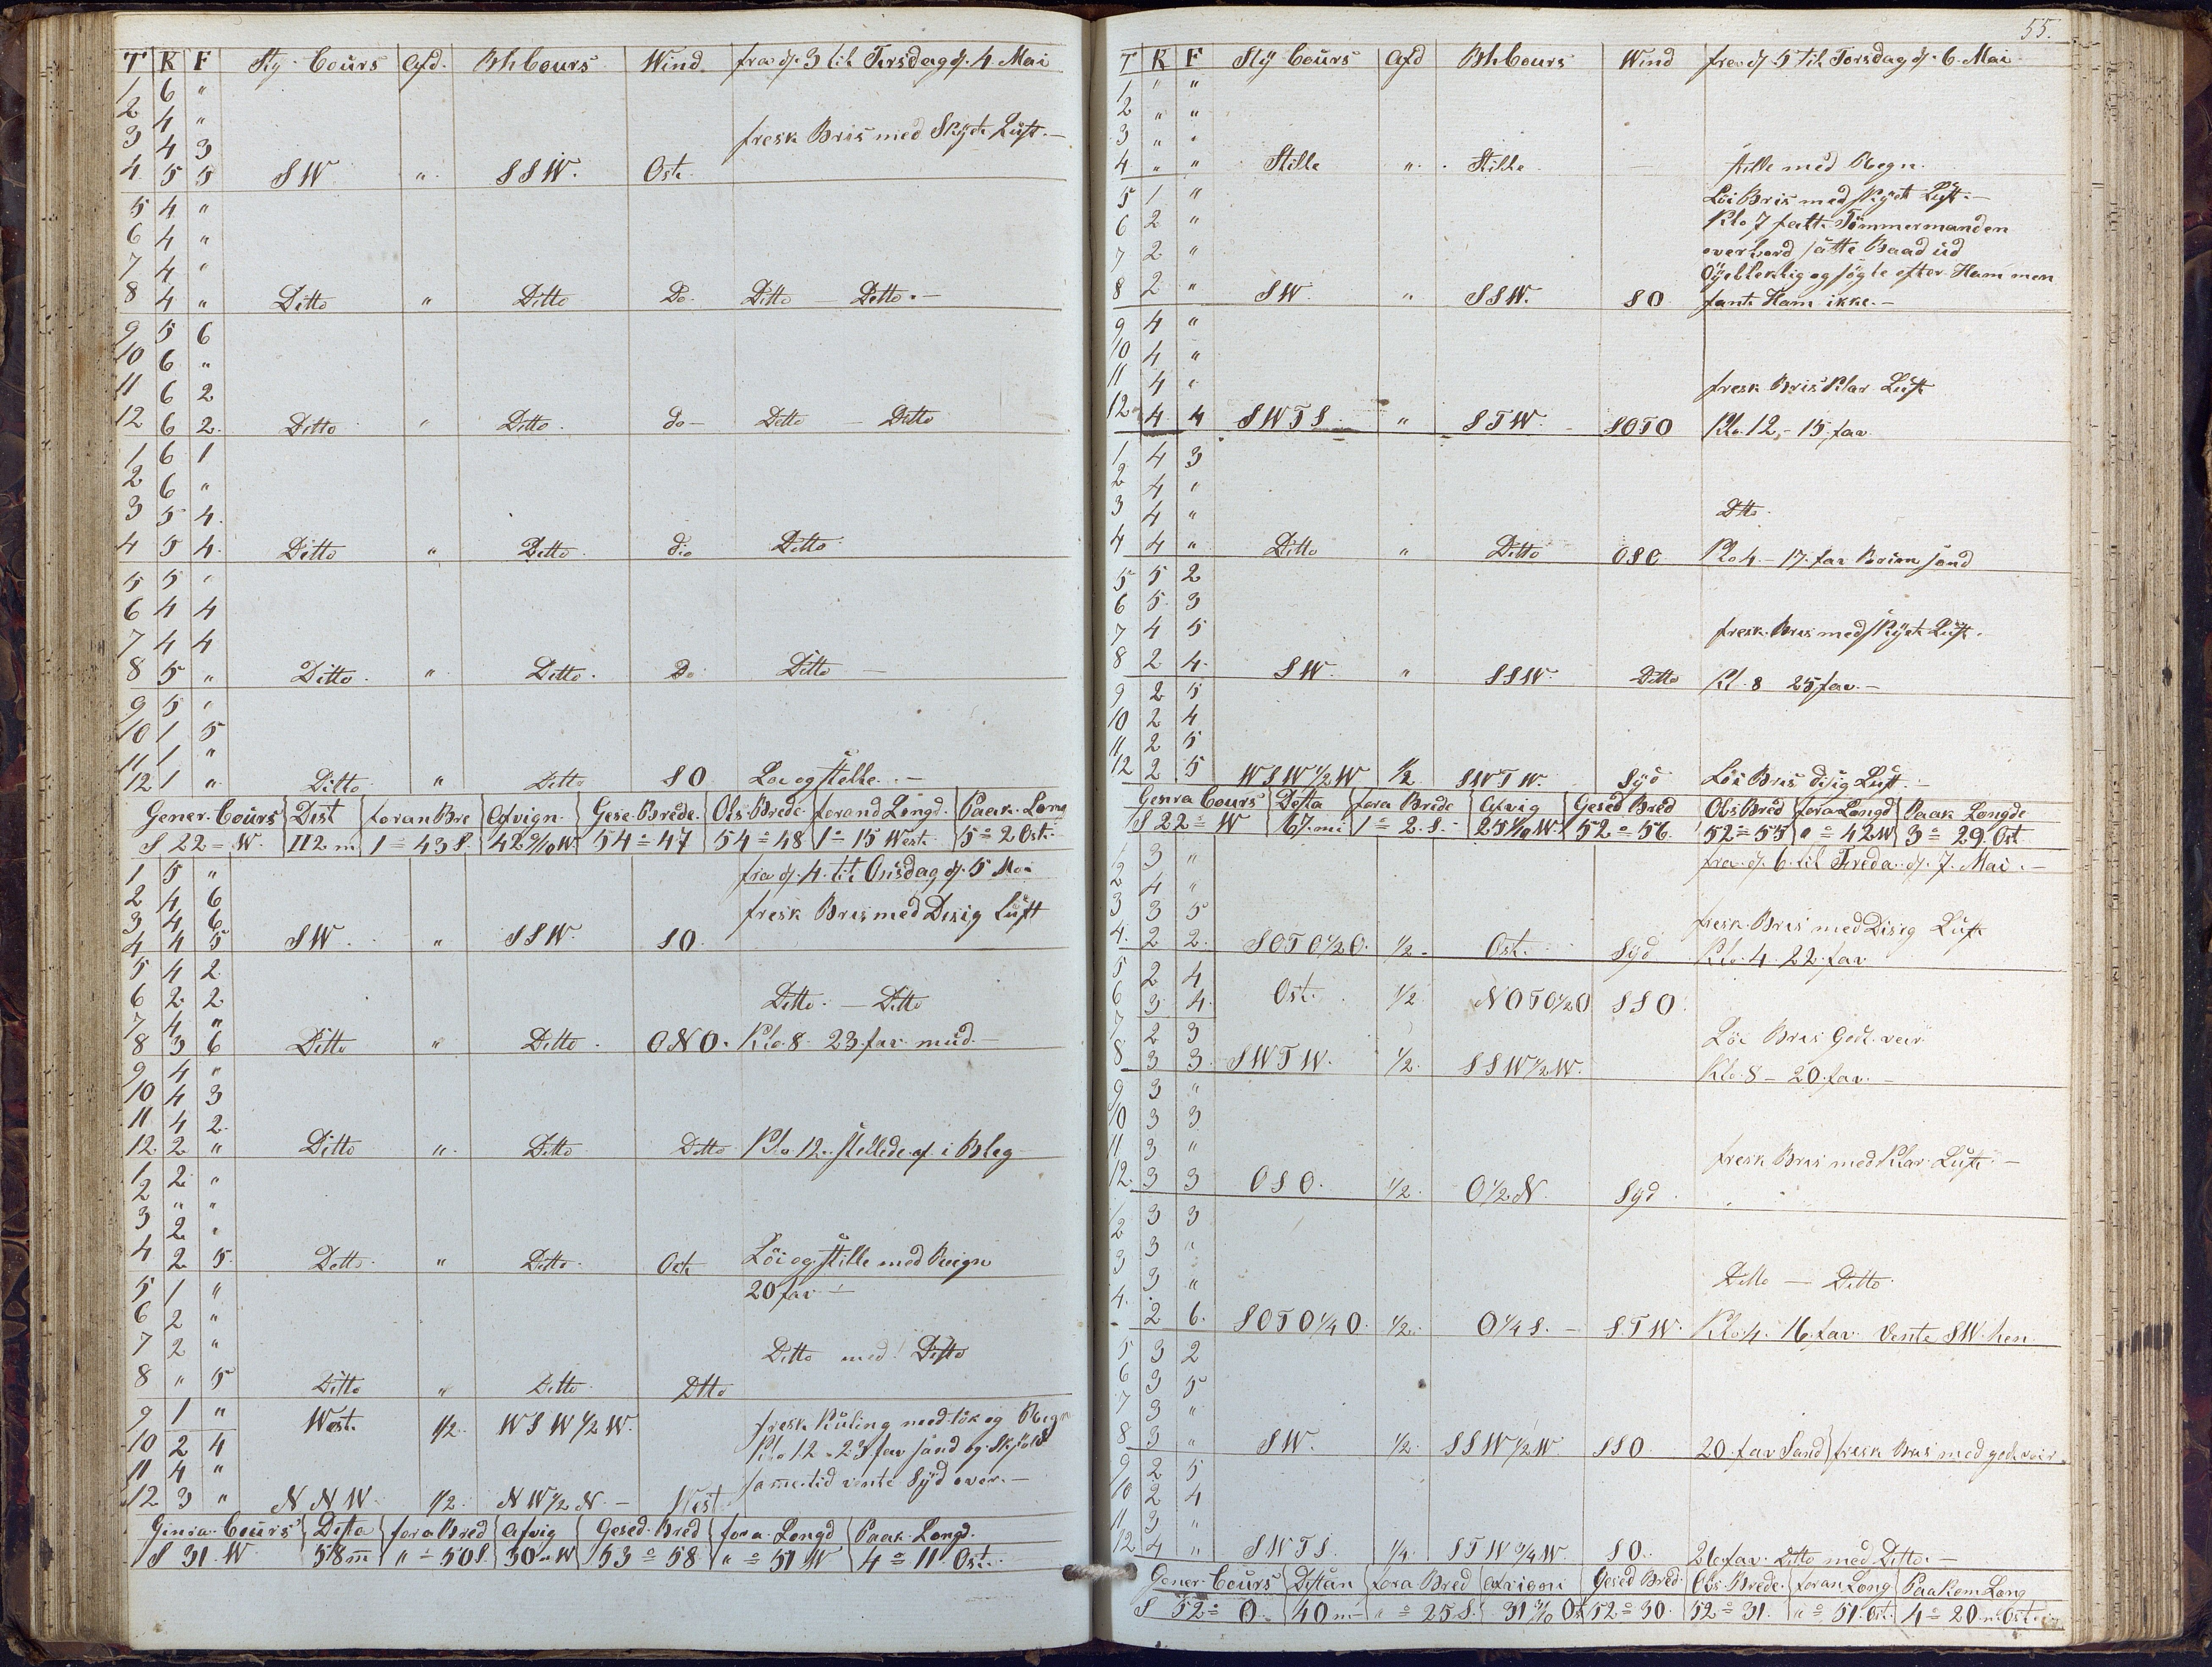 T K F Sty. Cours Afd. Bhbours Wind fra d. 3 til Tirsdag d. 4 Mai
1 6 "
2 4 "
3 4 3 fresk Bris med Skyet Luft.-
4 5 5 SW " SSW. Ost.
5 4 "
6 4 "
7 4 "
8 4 " Ditto " Ditto Do. Ditto - Ditto.-
9 5 6
10 6 "
11 6 2
12 6 2. Ditto " Ditto. do- Ditto - Ditto
1 6 1
2 6 "
3 5 4.
4 5 4. Ditto " Ditto. dio Ditto
5 5 "
6 4 4
7 4 4
8 5 " Ditto. " Ditto. Do Ditto -
9 5 "
10 1 5
11 1 "
12 1 " Ditto " Ditto SO Loi og stille.-
Gener. Cours Dist foran Bre Afvign. Gese. Brede. Obs. Brede. forand Longd. Paak. Long
S 22 = W. 112 m 1 = 43 S. 42 9/10 W. 54 = 47 54 = 48 1 = 15 West. 5 = 2 Ost.
1 5 " fra d. 4. til Onsdag d. 5 Mai
2 4 6
3 4 6 fresk Bris med Disig Luft
4 4 5 SW. " SSW. SO.
5 4 2
6 2 2 Ditto. - Ditto
7 4 "
8 3 6 Ditto " Ditto. ONO. Klo. 8. 23. fav. mud.-
9 4 "
10 4 3
11 4 2.
12 2 " Ditto ". Ditto. Ditto Klo 12. stellede af i Bleg
1 2 "
2 " "
3 2 "
4 2 5. Ditto. " Ditto. Ost Löi og stille med Reegn
5 1 " 20 fav -
6 2 "
7 2 " Ditto med Ditto
8 " 5 Ditto " Ditto Dtto
9 1 " West. 1/2. WSW 1/2 W. fresk Kuling med tök og Regn
10 2 4 Klo 12 - 23. fav sand og Skjöld
11 4 " same tid vente Syd over.-
12 3 " NNW. 1/2. NW 1/2 N.- West
Ginra. Cours Dista fora Bred Afvig Gesed. Bred fora. Longd Paak. Longd.
S 31. W 58 m " = 50 S. 30 " W 53 = 58 " = 51. W 4 = 11. Ost.
55.
T K F Sty Cours Afd Bhbours Wind fra d. 5 til Torsdag d. 6. Mai
1 " "
2 " "
3 " "
4 " " Stille ". Stille - stille med Regn.
5 1 " Löi Bris med skyet Luft.-
6 2 " Klo 7 falt Tömmermanden
7 2 " overbord satte Baad ud
Öyebleklig og sögte efter Ham men
8 2 " SW. " SSW. SO fant Ham ikke.-
9 4 "
10 4 "
11 4 " fresk Bris Klar Luft
12 4 4 SWTS. " STW. SOTO Klo. 12,- 15. fav.
1 4 3
2 4 "
3 4 " Dtto.
4 4 " Ditto " Ditto OSO Klo 4.- 17. fav Bruun sand
5 5 2
6 5. 3
7 4 5 fresk. Bris med skyet Luft.
8 2 4. SW. " SSW. Ditto Kl. 8 25 fav.-
9 2 5
10 2 4
11 2 5
12 2 5 WSW 1/2 W 1/2 SWTW. Syd Löi Bris disig Luft.
Genra Cours Dista fora Brede Afvig Gesed Bred Obs Bred fora Longd Paak Longde
S 22 = W 67. mi 1 = 2. S. 25 1/10 W 52 = 56. 52 = 55 " = 42 W 3 = 29. Ost
1 3 " fra d. 6. til Freda. d. 7. Mai.-
2 4 "
3 3 5 fresk. Bris med Disig Luft
4. 2 2. SOTO 1/2 O. 1/2. Ost. Syd Klo. 4. 22. fav
5 2 4
6 3 4. Ost. 1/2 NOTO 1/2 O SSO.
7 2 3 Löi Bris Godt. veir.
8 3 3. SWTW. 1/2. SSW 1/2 W. Klo. 8 - 20. fav.-
9 3 "
10 3 3
11 3 " fresk Bris med Klar. Luft.-
12. 3 3 OSO. 1/2. O 1/2 N. Syd.
1 3 3
2 3 "
3 3 " Ditto - Ditto.
4. 2 6. SOTO 1/4 O. 1/2. O 1/4 S.- STW. Klo. 4. 16. fav. Vente SW. hen
5 3 2
6 3 5
7 3 "
8 3 " SW. 1/2. SSW 1/2 W. SSO. 20. fav Sand fresk Bris med godt veir.
9 2 5
10 2 4
11 3 "
12 4 " SWTS. 1/4. STW 3/4 W. SO. 26 fav. Ditto med Ditto.-
Gener. Cours Distan fora Bred Afvign Gesed Bred. Obs. Brede. foran Long Paa Kom Long
S 52 = O. 40 m- " = 25 S. 31 3/10 Os 52 = 30. 52 = 31. " = 51. Ost. 4 = 20. m Ost.